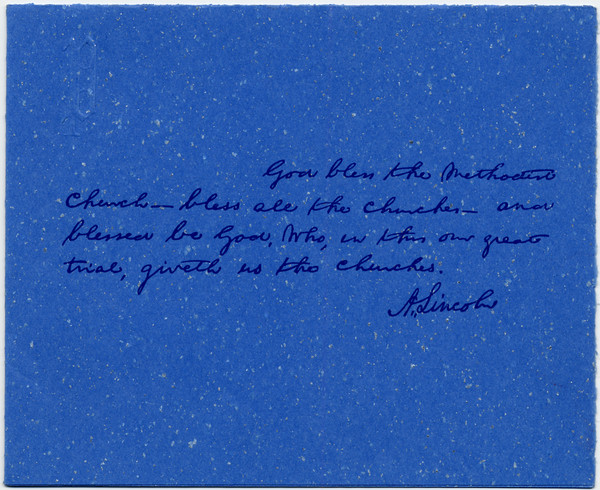 God bless the Methodist
Church — bless all the churches — and
blessed be God, Who, in this our great
trial, giveth us the churches.
A. Lincoln